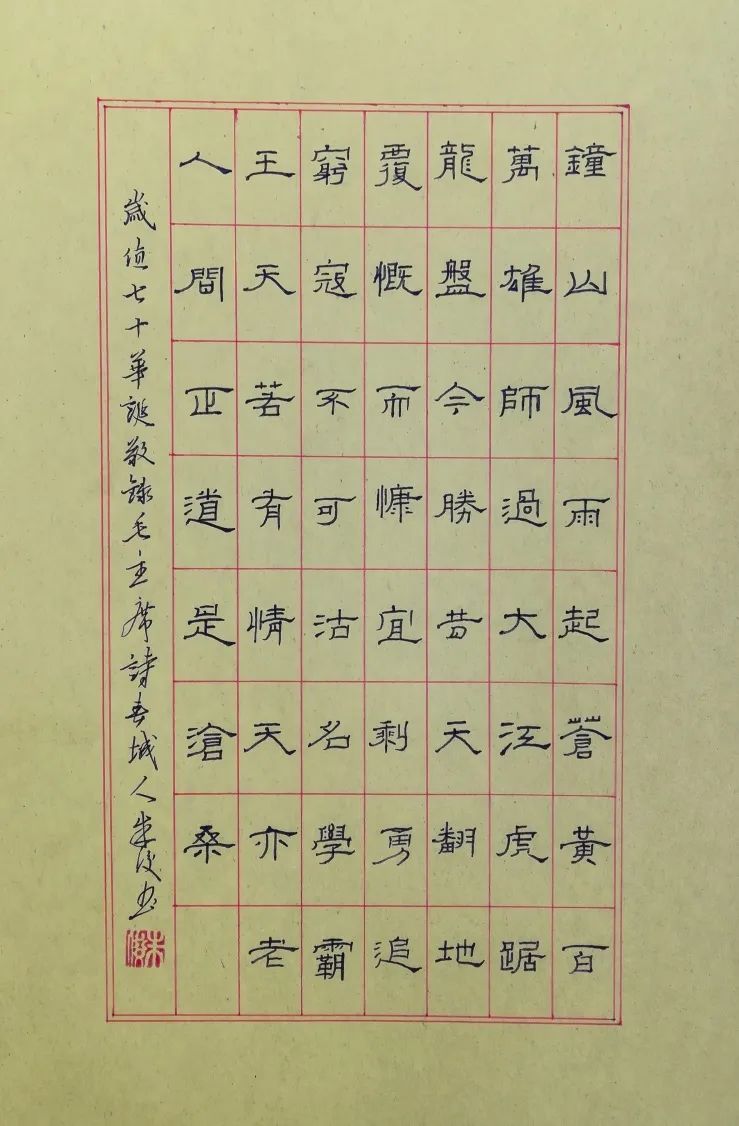 鐘山風雨起蒼黃百
萬雄師過大江虎踞
龍盤今勝昔天翻地
覆慨而慷宜剩勇追
窮寇不可沽名學霸
王天若有情天亦老
人間正道是滄桑
歲值七十華誕敬錄毛主席詩春城人朱俊书